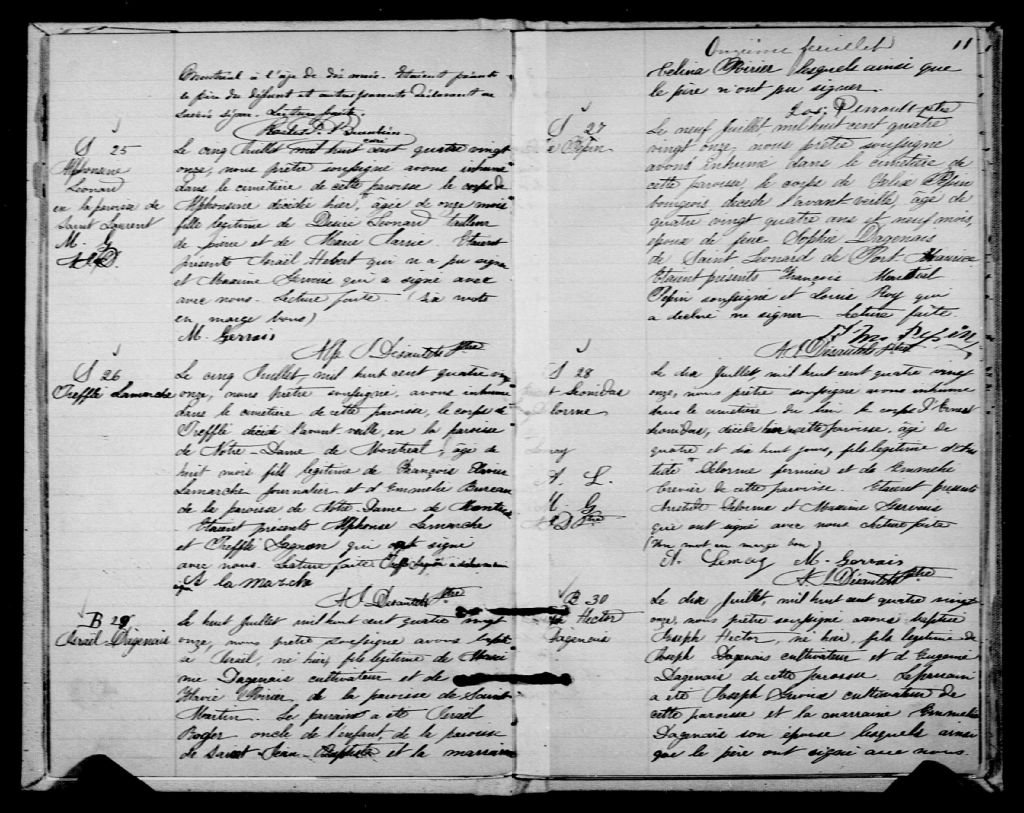 Montréal à l'âge de dix mois. Etaient présents
le père du défunt et autres parents déclarant ne
savoir signer. Lecture faite.
curé
S 25
Alphonsine
Leonard
en la paroisse de
Saint Laurent
M. G
A D.
Le cinq Juillet mil huit cent quatre vingt
onze, nous prêtre soussigné avons inhumé
dans le cimetière de cette paroisse le corps de
Alphonsine décédée hier, agée de onze mois
fille legitime de Desire Leonard tailleur
de pierre et de Marie . Etaient
présents Israël Hebert qui n a pu signer
et Maxime Gervais qui a signé avec
avec nous. Lecture faite. (Six mots
en marge bons)
M. Gervais
Alp. J Désautels Ptre
S 26
Treffle Lamarche
Le cinq Juillet, mil huit cent quatre vingt
onze, nous prêtre soussigné, avons inhumé
dans le cimetière de cette paroisse, le corps de
Trefflé décédé l'avant veille, en la paroisse
de Notre-Dame de Montreal, âgé de
huit mois fils legitime de François
Lamarche journalier et d'Emmelie Bureau
de la paroisse de Notre-Dame de Montreal
Etaient présents Alphonse Lamarche
et Trefflé Gagnon qui signé
avec nous. Lecture faite.
A la marche
A J Désautels Ptre
B 29
Israël Dagenais
Le huit Juillet mil huit cent quatre vingt
onze, nous prêtre soussigné avons baptisé
Israël, né hier, fils legitime de
Dagenais cultivateur et de
Poirier, de la paroisse de Saint
Martin. Le parrain a été Israël
Roger oncle de l'enfant, de la paroisse
de Saint-Jean-Baptiste et la marraine
Onzième feuillet 11
Celina Poirier lesquels ainsi que
le père n'ont pu signer.
Jos. Perrault ptre
S 27
Pepin
Le neuf Juillet mil huit cent quatre
vingt onze, nous prêtre soussigné
avons inhumé dans le cimetière de
cette paroisse, le corps de Felix Pepin
bourgeois décédé l'avant veille, âgé de
quatre vingt quatre ans et neuf mois,
époux de feue Sophie Dagenais
de Saint Leonard de Port Maurice
Etaient présents François Montreal
Pepin soussigné et Louis Roy qui
a declaré ne signer. Lecture faite.
Pepin
A J Désautels ptre
S 28
Leonidas
Delorme
A. L.
M. G
A D Ptre
Le dix Juillet, mil huit cent quatre vingt
onze, nous prêtre soussigné avons inhumé
dans le cimetière du lieu le corps d'Ernest
Leonidas, décédé hier cette paroisse, âgé de
quatre et dix huit jours, fils legitime d'Aris
tide Delorme fermier et de Emmelie
de cette paroisse. Etaient présents
Aristide Delorme et Maxime Gervais
qui ont signé avec nous Lecture faite
(Un mot en marge bon)
A. Lemay M. Gervais
A J Désautels Ptre
B 30
Hector
Dagenais
Le dix Juillet, mil huit cent quatre vingt
onze, nous prêtre soussigné avons baptisé
Joseph Hector, né hier, fils legitime de
Joseph Dagenais cultivateur et d'Eugenie
Dagenais de cette paroisse. Le parrain
a été Joseph cultivateur de
cette paroisse et la marraine Emmelie
Dagenais son épouse lesquels ainsi
que le père ont signé avec nous.